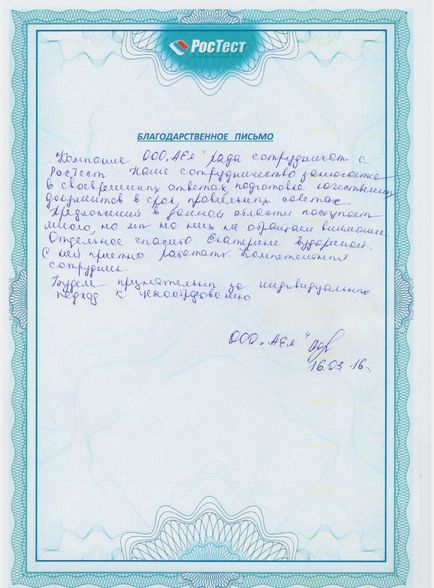 РОСТЕСТ
БЛАГОДАРСТВЕННОЕ ПИСЬМО
Компания ООО „АЕл" рада сотрудничат с
РосТест. Наше сотрудничество заключается
в своевреминых ответах, подготовке качественных
документов в срок, правильных советах.
Предложений в данной области поступает
много, но мы на них не обращаем внимание.
Отдельное спасибо Екатерине
С ней приятно работать. Компетентный
сотрудник.
Будем признательны за индивидуальный
подход к
ООО „АЕл"
16.03.16г.